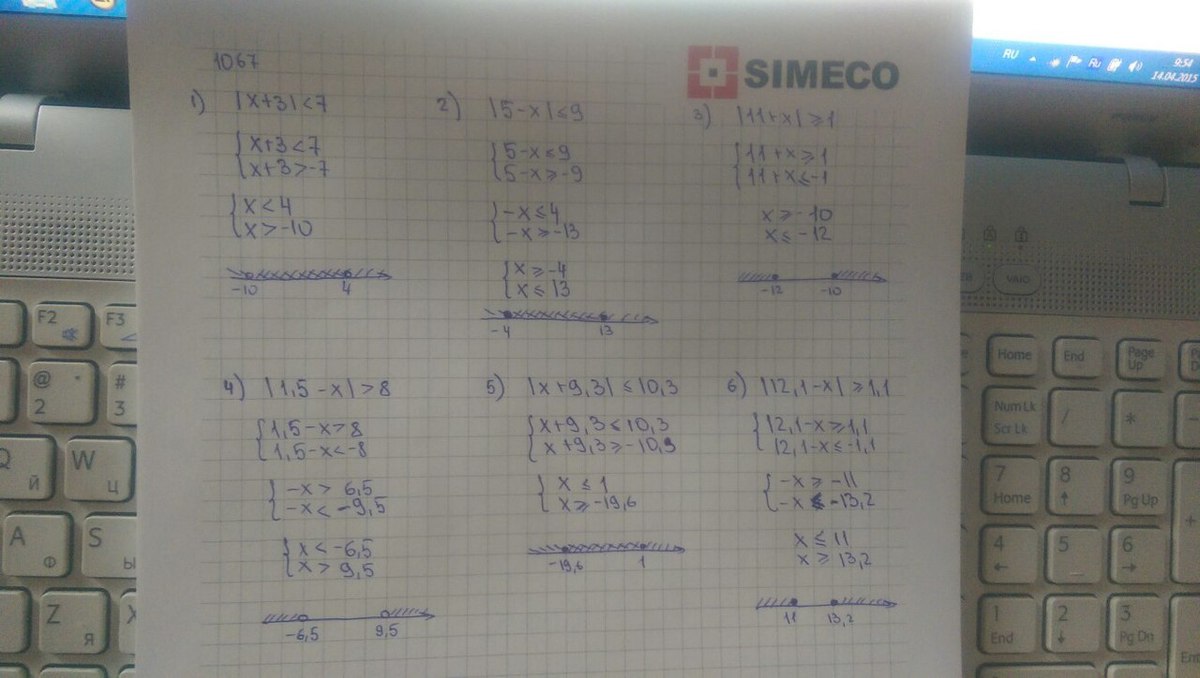 1067
SIMECO
1) |x+3|<7
x+3<7
x+3>-7
x<4
x>-10
-10 4
2) |5-x|≤9
5-x≤9
5-x≥-9
-x≤4
-x≥-13
x≥-4
x≤13
-4 13
3) |11+x|≥1
11+x≥1
11+x≤-1
x≥-10
x≤-12
-12 -10
4) |1,5-x|>8
1,5-x>8
1,5-x<-8
-x>6,5
-x<-9,5
x<-6,5
x>9,5
-6,5 9,5
5) |x+9,3|≤10,3
x+9,3≤10,3
x+9,3≥-10,3
x≤1
x≥-19,6
-19,6 1
6) |12,1-x|≥1,1
12,1-x≥1,1
12,1-x≤-1,1
-x≥-11
-x≤-13,2
x≤11
x≥13,2
11 13,2
RU
Ru
9:54
14.04.2015
VAIO
F2
F3
@
2
#
3
Q
Й
W
Ц
A
Ф
S
Ы
Z
Я
X
Home
End
Page Up
Num Lk
Scr Lk
/
*
7
Home
8
↑
9
Pg Up
+
4
←
5
6
→
1
End
2
↓
3
Pg Dn